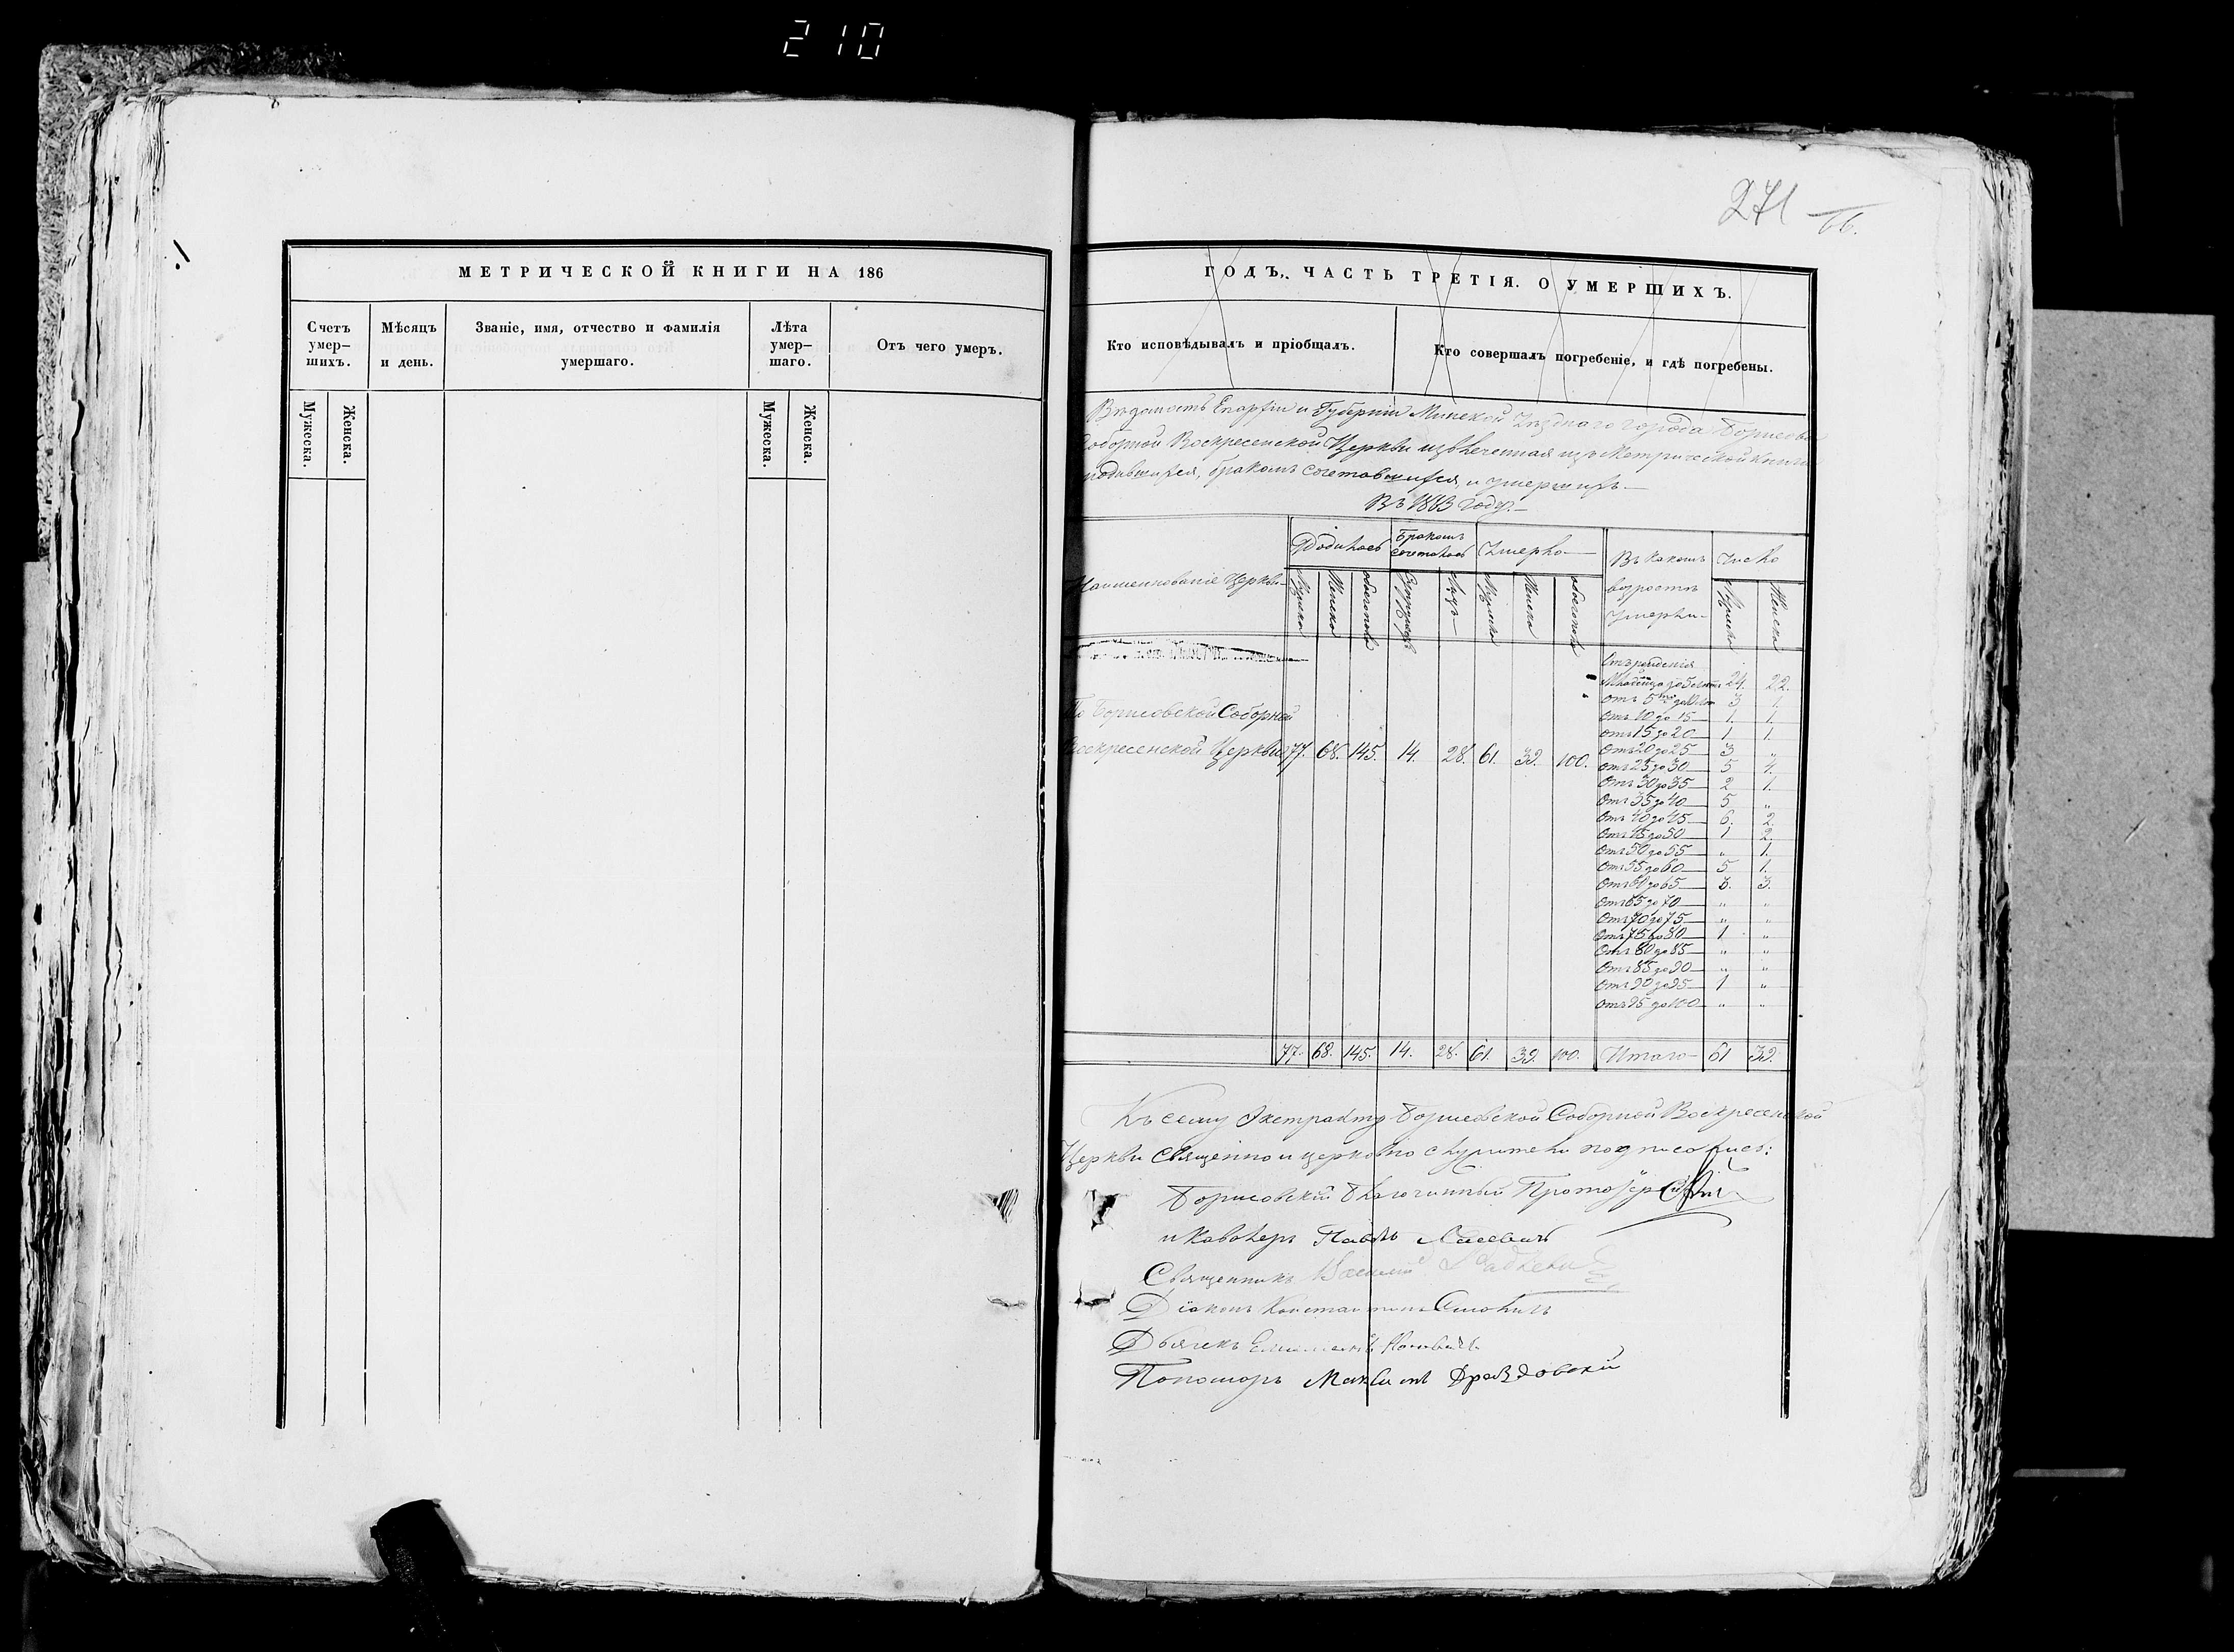 210
271
66.
МЕТРИЧЕСКОЙ КНИГИ НА 186
Счетъ умер-шихъ.
Мѣсяцъ и день.
Званіе, имя, отчество и фамилія умершаго.
Лѣта умер-шаго.
Отъ чего умеръ.
Мужеска.
Женска.
Мужеска.
Женска.
ГОДЪ, ЧАСТЬ ТРЕТІЯ. О УМЕРШИХЪ.
Кто исповѣдывалъ и пріобщалъ.
Кто совершалъ погребеніе, и гдѣ погребены.
Вѣдомость Епархіи и Губерніи Минской Уѣзднаго города Борисова
Соборной Воскресенской Церкви извлеченная изъ Метрической Книги
родившихся, бракомъ сочетавшихся, и умершихъ.—
Въ 1863 году.—
Наименованіе Церкви
Родилось
Бракомъ сочеталось
Умерло
Въ какомъ возрастѣ умерли
Число
Мужска
Женска
обоего пола
Лицъ
Мужска
Женска
обоего пола
Мужска
Женска
По Борисовской Соборной
Воскресенской Церкви 77. 68. 145. 14. 28. 61. 39. 100.
Отъ рожденія
Младенца до 5 лѣтъ 24. 22.
Отъ 5 до 10 3 1.
Отъ 10 до 15 1. 1.
Отъ 15 до 20 1 1.
Отъ 20 до 25 3 „
Отъ 25 до 30 5 4.
Отъ 30 до 35 2 1.
Отъ 35 до 40 5 „
Отъ 40 до 45 6. 2
Отъ 45 до 50 1 2
Отъ 50 до 55 „ 1.
Отъ 55 до 60 5 1.
Отъ 60 до 65 3. 3.
Отъ 65 до 70 „ „
Отъ 70 до 75 „ „
Отъ 75 до 80 1 „
Отъ 80 до 85 „ „
Отъ 85 до 90 „ „
Отъ 90 до 95 1 „
Отъ 95 до 100 „ „
77. 68. 145. 14. 28. 61. 39. 100. Итого 61 39.
Къ сему Экстракту Борисовской Соборной Воскресенской
Церкви Священно и церковно служители подписались:
Борисовскій Благочинный Протоіерей
и Кавалеръ Павелъ
Священникъ Василій
Діаконъ Константинъ
Дьячекъ
Пономарь Максимъ Дроздовскій